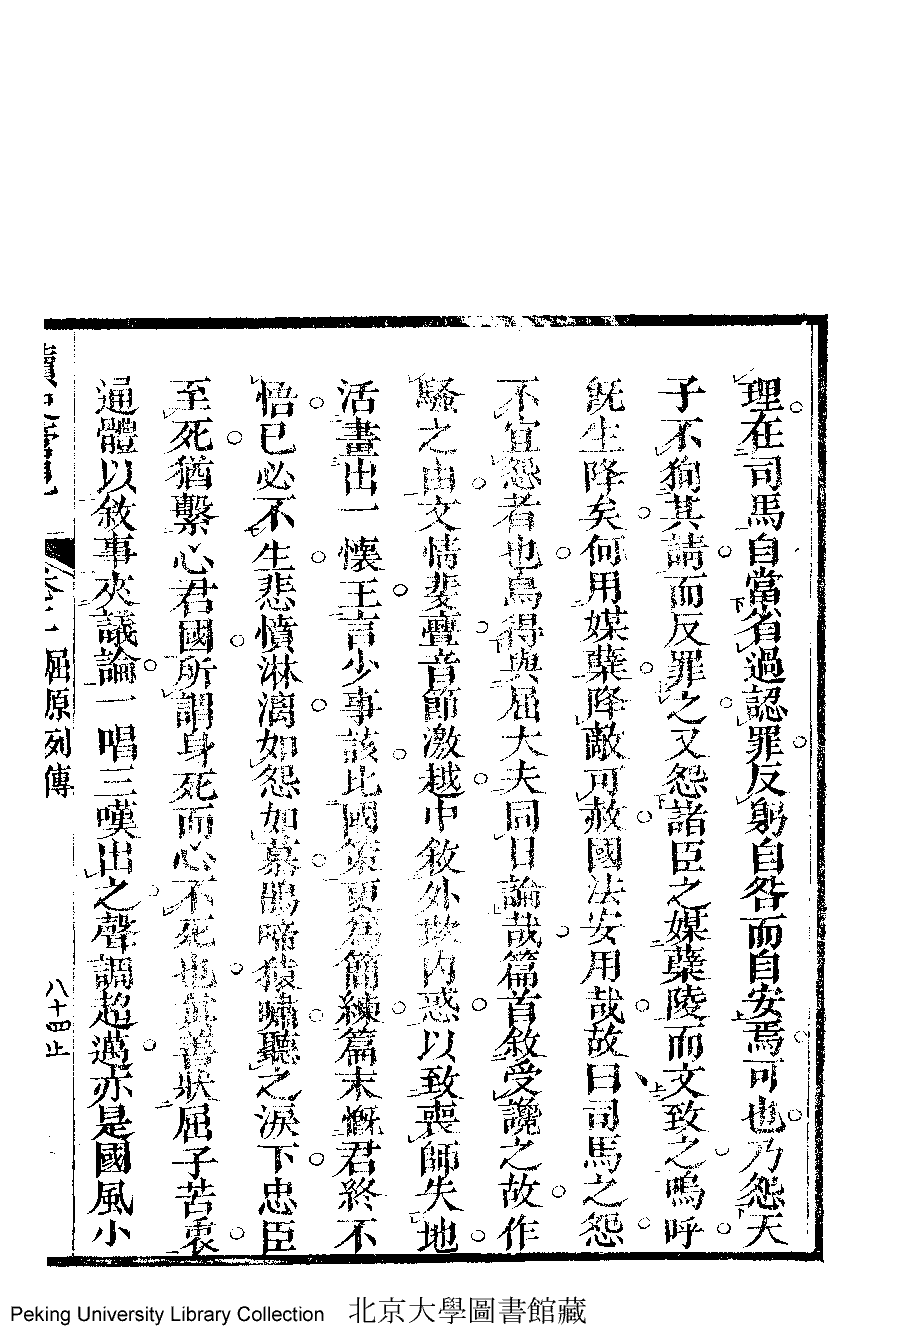 理在司馬自當省過認罪反躬自咎而自安焉可也乃怨天
子不狥其請而反罪之又怨諸臣之媒蘖陵而文致之嗚呼
旣生降矣何用媒蘖降敵可赦國法安用哉故曰司馬之怨
不宜怨者也烏得與屈大夫同日論哉篇首敘受讒之故作
騷之由文情斐亹音節激越中敘外欺內惑以致喪師失地
活畫出一懷王言少事該比國策更爲簡練篇末慨君終不
悟已必不生悲憤淋漓如怨如慕鵑啼猿嘯聽之淚下忠臣
至死猶繫心君國所謂身死而心不死也眞善狀屈子苦衷
通體以敘事夾議論一唱三嘆出之聲調超邁亦是國風小
屈原列傳
八十四止
Peking University Library Collection 北京大學圖書館藏